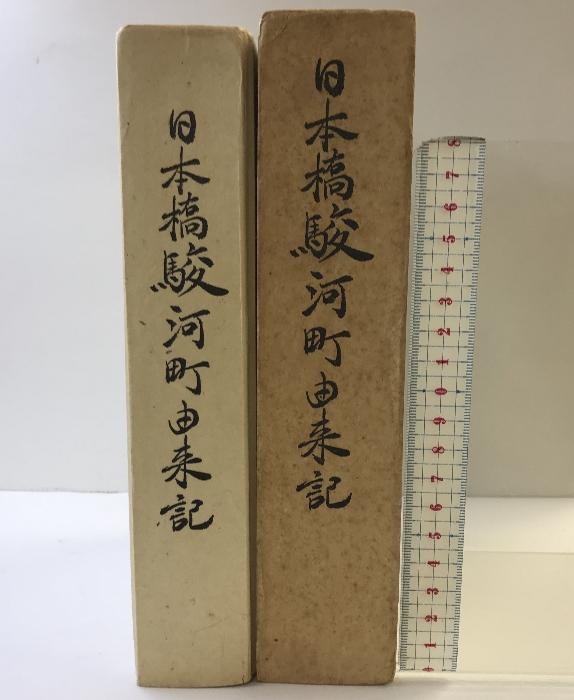 日本橋駿河町由来記
日本橋駿河町由来記
8
7
6
5
4
3
2
1
0
9
8
7
6
5
4
3
2
1